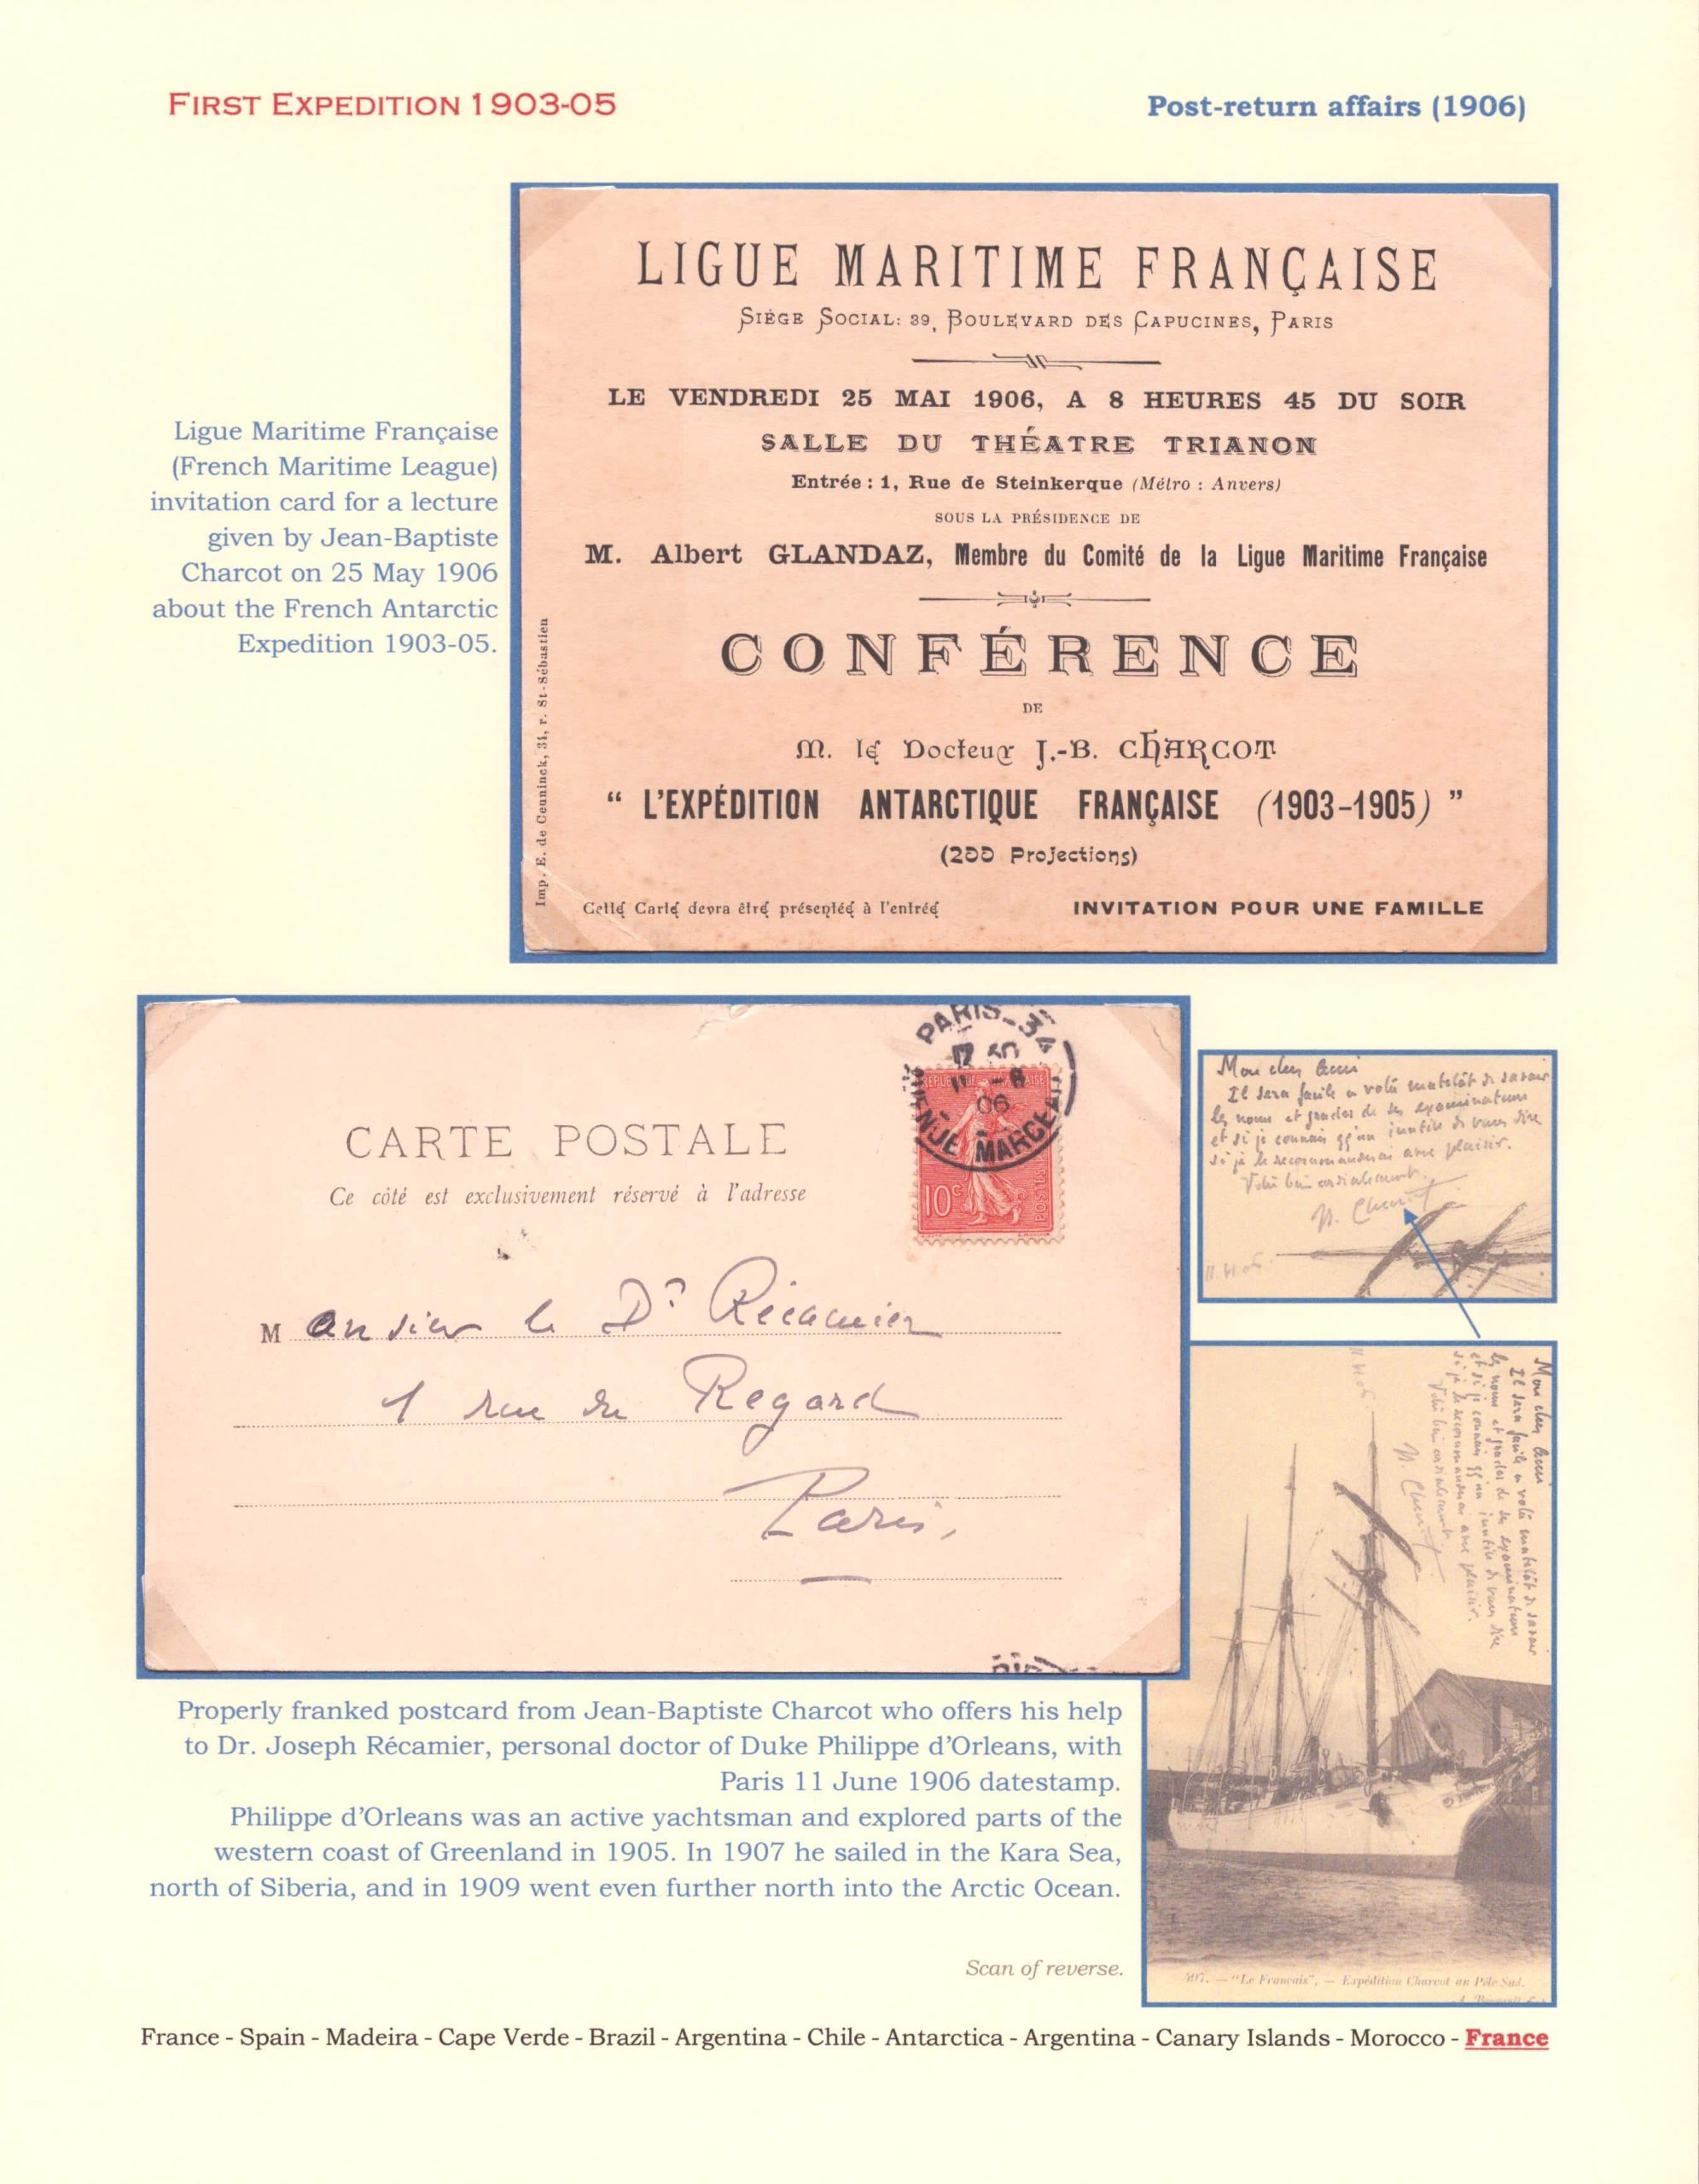 FIRST EXPEDITION 1903-05
Post-return affairs (1906)
LIGUE MARITIME FRANÇAISE
SIÈGE SOCIAL: 39, BOULEVARD DES CAPUCINES, PARIS
LE VENDREDI 25 MAI 1906, A 8 HEURES 45 DU SOIR
SALLE DU THÉATRE TRIANON
Entrée : 1, Rue de Steinkerque (Métro : Anvers)
SOUS LA PRÉSIDENCE DE
M. Albert GLANDAZ, Membre du Comité de la Ligue Maritime Française
CONFÉRENCE
DE
M. le Docteur J.-B. CHARCOT
“ L'EXPÉDITION ANTARCTIQUE FRANÇAISE (1903-1905) ”
(200 Projections)
Cette Carte devra être présentée à l'entrée
INVITATION POUR UNE FAMILLE
Imp. E. de Ceuninck, 31, r. St-Sébastien
Ligue Maritime Française
(French Maritime League)
invitation card for a lecture
given by Jean-Baptiste
Charcot on 25 May 1906
about the French Antarctic
Expedition 1903-05.
PARIS_34
06
AVENUE MARCEAU
10c
POSTES
CARTE POSTALE
Ce côté est exclusivement réservé à l'adresse
Monsieur le Dr Récamier
1 rue du Regard
Paris,
Mon cher Ami
Il sera facile a votre matelôt de savoir
les noms et grades de ses examinateurs
et si je connais qq'un inutile de vous dire
si je le recommanderai avec plaisir.
Votre bien cordialement
Charcot
Mon cher Ami
Il sera facile a votre matelôt de savoir
les noms et grades de ses examinateurs
et si je connais qq'un inutile de vous dire
si je le recommanderai avec plaisir.
Votre bien cordialement
Charcot
497. — "Le Français", — Expédition Charcot au Pôle Sud.
Properly franked postcard from Jean-Baptiste Charcot who offers his help
to Dr. Joseph Récamier, personal doctor of Duke Philippe d'Orleans, with
Paris 11 June 1906 datestamp.
Philippe d'Orleans was an active yachtsman and explored parts of the
western coast of Greenland in 1905. In 1907 he sailed in the Kara Sea,
north of Siberia, and in 1909 went even further north into the Arctic Ocean.
Scan of reverse.
France - Spain - Madeira - Cape Verde - Brazil - Argentina - Chile - Antarctica - Argentina - Canary Islands - Morocco - France